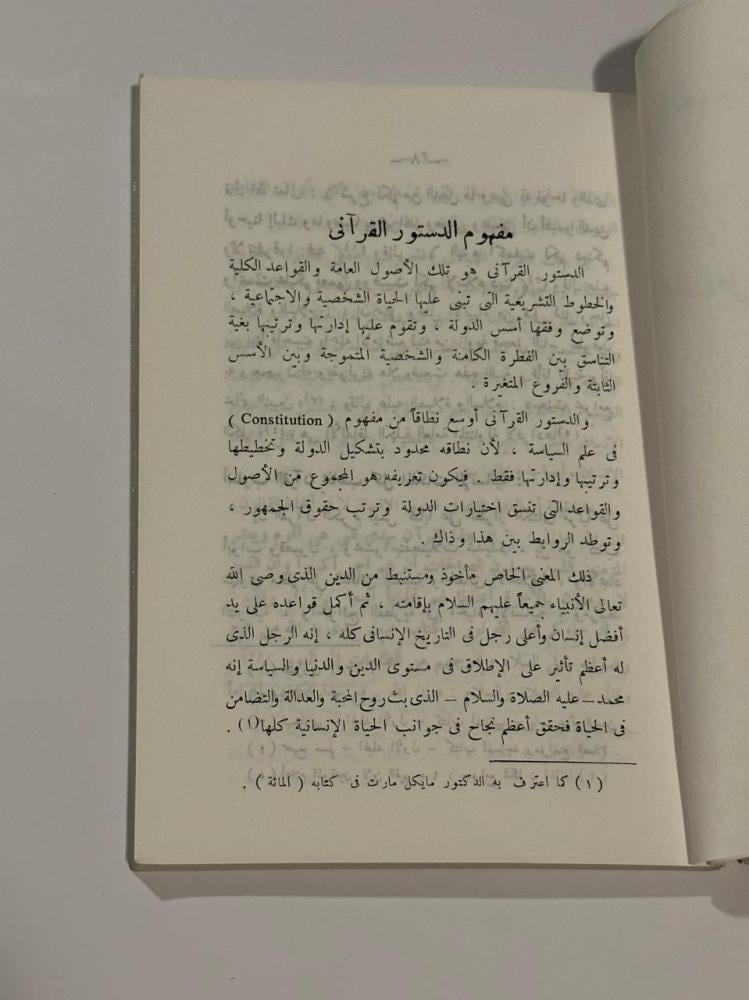 مفهوم الدستور القرآنى
الدستور القرآنى هو تلك الأصول العامة والقواعد الكلية
والخطوط التشريعية التى تبنى عليها الحياة الشخصية والاجتماعية ،
وتوضع وفقها أسس الدولة ، وتقوم عليها إدارتها وترتيبها بغية
التناسق بين الفطرة الكامنة والشخصية المتموجة وبين الأسس
الثابتة والفروع المتغيرة .
والدستور القرآنى أوسع نطاقاً من مفهوم ( Constitution )
فى علم السياسة ، لأن نطاقه محدود بتشكيل الدولة وتخطيطها
وترتيبها وإدارتها فقط . فيكون تعريفه هو المجموع من الأصول
والقواعد التى تنسق اختيارات الدولة وترتب حقوق الجمهور ،
وتوطد الروابط بين هذا وذاك .
ذلك المعنى الخاص مأخوذ ومستنبط من الدين الذى وصى الله
تعالى الأنبياء جميعاً عليهم السلام بإقامته ، ثم أكمل قواعده على يد
أفضل إنسان وأعلى رجل فى التاريخ الإنسانى كله ، إنه الرجل الذى
له أعظم تأثير على الإطلاق فى مستوى الدين والدنيا والسياسة إنه
محمد – عليه الصلاة والسلام – الذى بث روح المحبة والعدالة والتضامن
فى الحياة فحقق أعظم نجاح فى جوانب الحياة الإنسانية كلها(١) .
(١) كما اعترف به الدكتور مايكل مارت فى كتابه ( المائة ) .